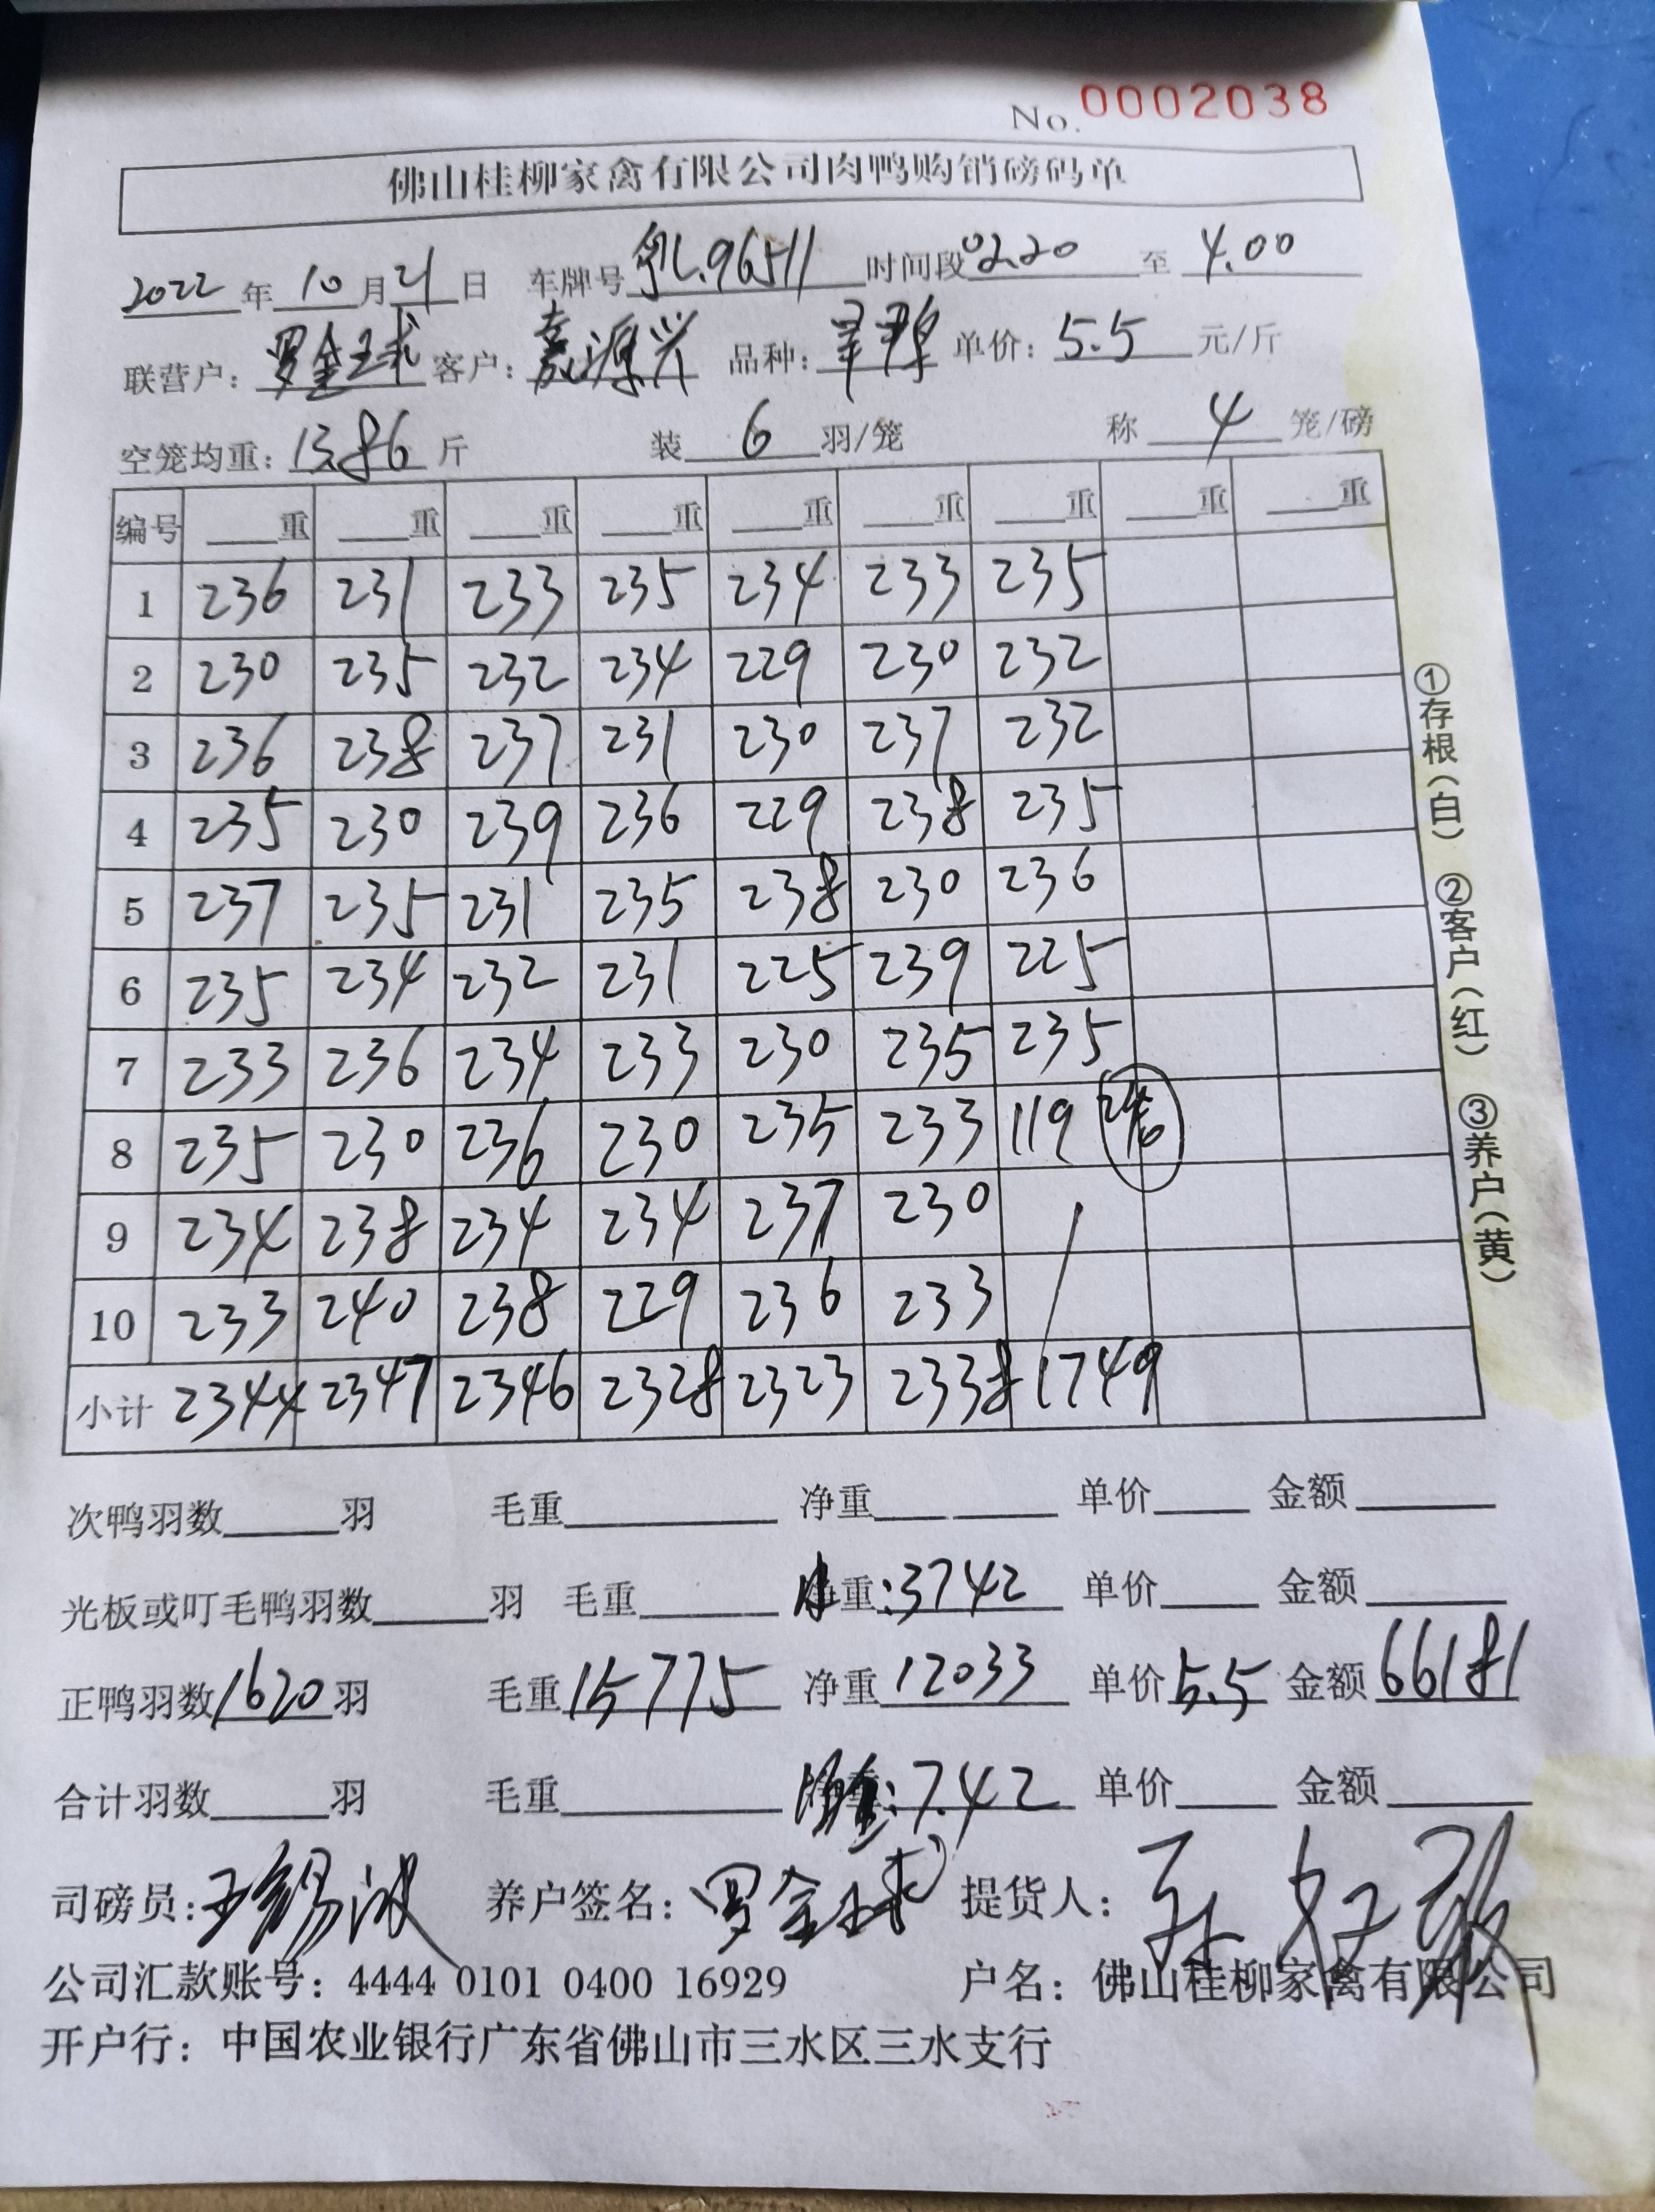 No. 0002038
佛山桂柳家禽有限公司肉鸭购销磅码单
2022年10月21日 车牌号 粤L.96511 时间段 02.20 至 4.00
联营户：罗金球 客户：源兴 品种： 单价：5.5元/斤
空笼均重：13.86斤 装6羽/笼 称4笼/磅
编号 重 重 重 重 重 重 重 重 重
1 236 231 233 235 234 233 235
2 230 235 232 234 229 230 232
3 236 238 237 231 230 237 232
4 235 230 239 236 229 238 235
5 237 235 231 235 238 230 236
6 235 234 232 231 225 239 225
7 233 236 234 233 230 235 235
8 235 230 236 230 235 233 119
9 234 238 234 234 237 230
10 233 240 238 229 236 233
小计 2344 2347 2346 2328 2323 2338 1749
次鸭羽数 羽 毛重 净重 单价 金额
光板或叮毛鸭羽数 羽 毛重 重:3742 单价 金额
正鸭羽数1620羽 毛重15775 净重12033 单价5.5 金额66181
合计羽数 羽 毛重 :7.42 单价 金额
司磅员: 养户签名：罗金球 提货人：
公司汇款账号：4444 0101 0400 16929 户名：佛山桂柳家禽有限公司
开户行：中国农业银行广东省佛山市三水区三水支行
①存根（白） ②客户（红） ③养户（黄）